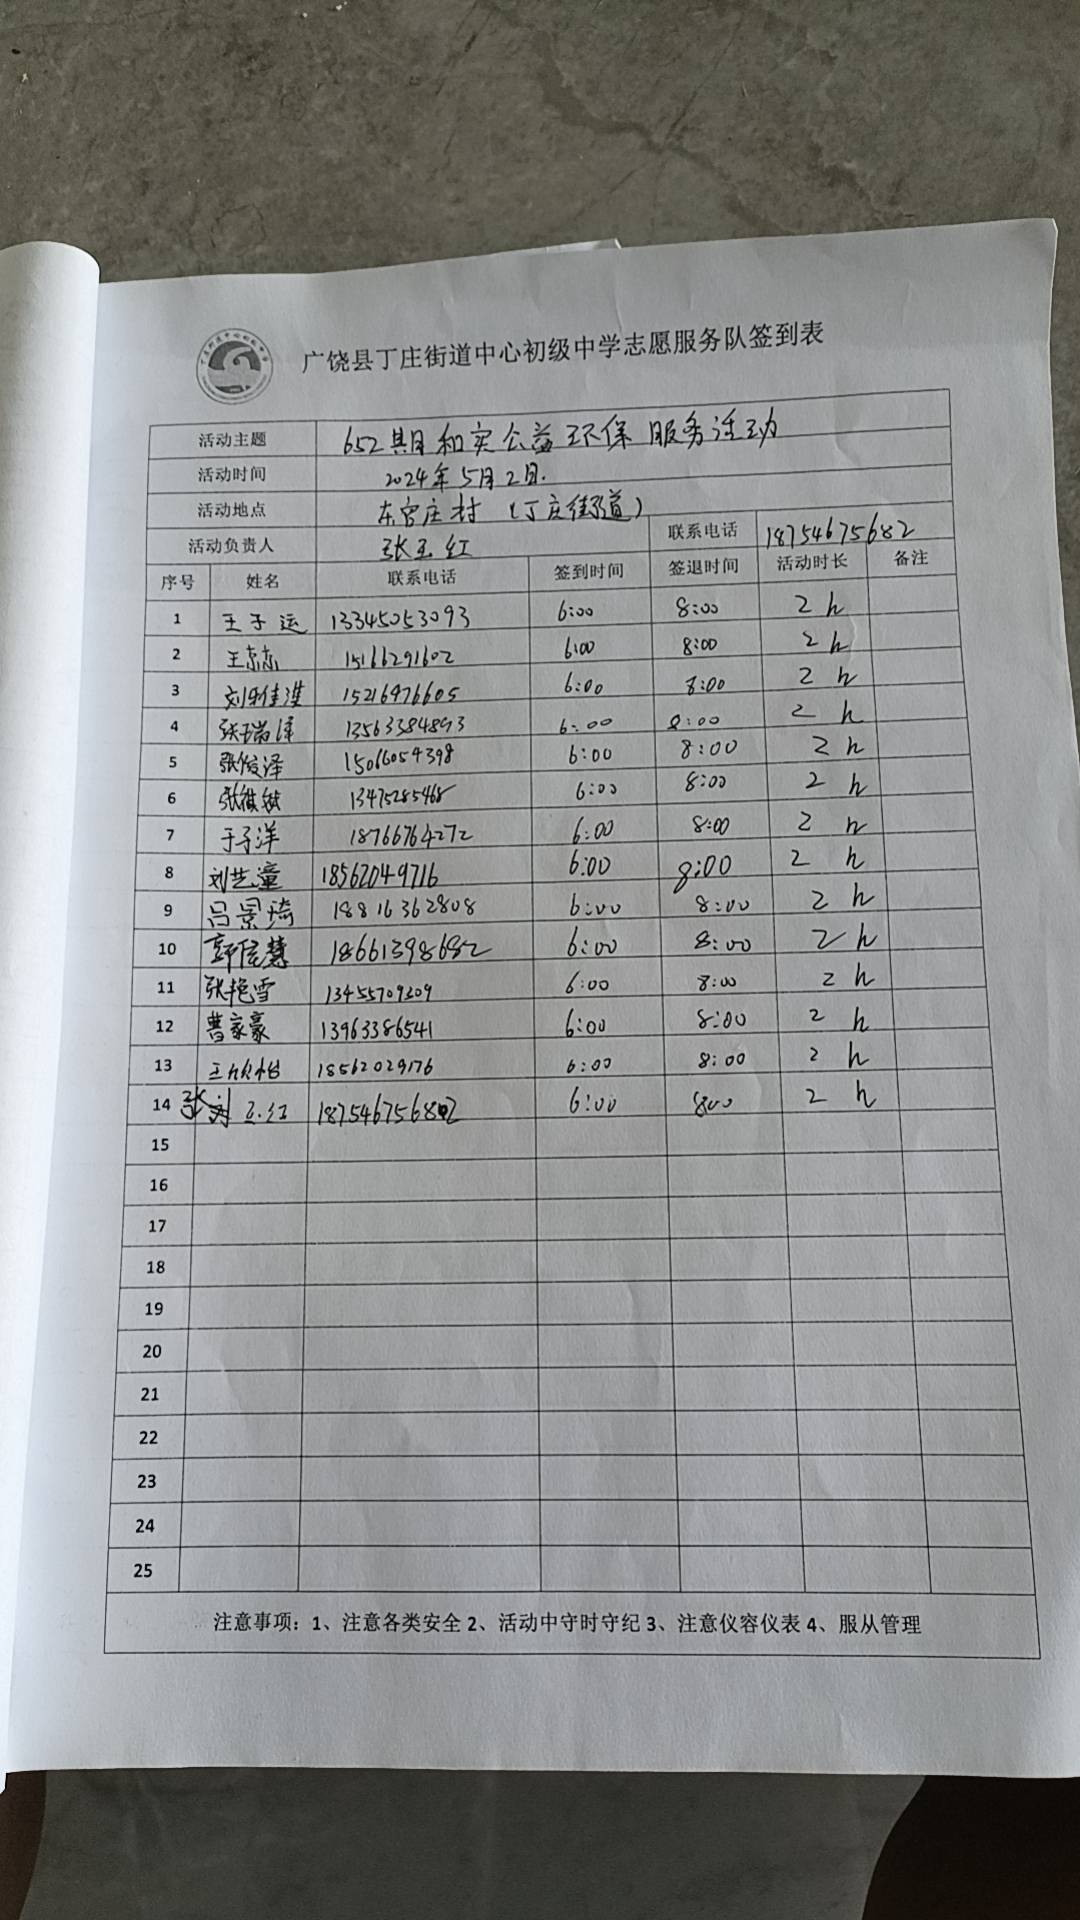 广饶县丁庄街道中心初级中学志愿服务队签到表
活动主题 652期和实公益环保服务活动
活动时间 2024年5月2日.
活动地点 东官庄村（丁庄街道）
活动负责人 张玉红 联系电话 18754675682
序号 姓名 联系电话 签到时间 签退时间 活动时长 备注
1 王子运 13345053093 6:00 8:00 2h
2 王志志 15166291602 6:00 8:00 2h
3 15216976605 6:00 8:00 2h
4 张瑞泽 13563384893 6:00 8:00 2h
5 张俊泽 15066054398 6:00 8:00 2h
6 13475285468 6:00 8:00 2h
7 于子洋 18766764272 6:00 8:00 2h
8 刘艺潼 18562049716 6:00 8:00 2h
9 吕景琦 18816362808 6:00 8:00 2h
10 郭信慧 18661398682 6:00 8:00 2h
11 张艳雪 13455709309 6:00 8:00 2h
12 曹家豪 13963386541 6:00 8:00 2h
13 王欣怡 18562029176 6:00 8:00 2h
14 张玉红 18754675682 6:00 8:00 2h
15
16
17
18
19
20
21
22
23
24
25
注意事项：1、注意各类安全 2、活动中守时守纪 3、注意仪容仪表 4、服从管理